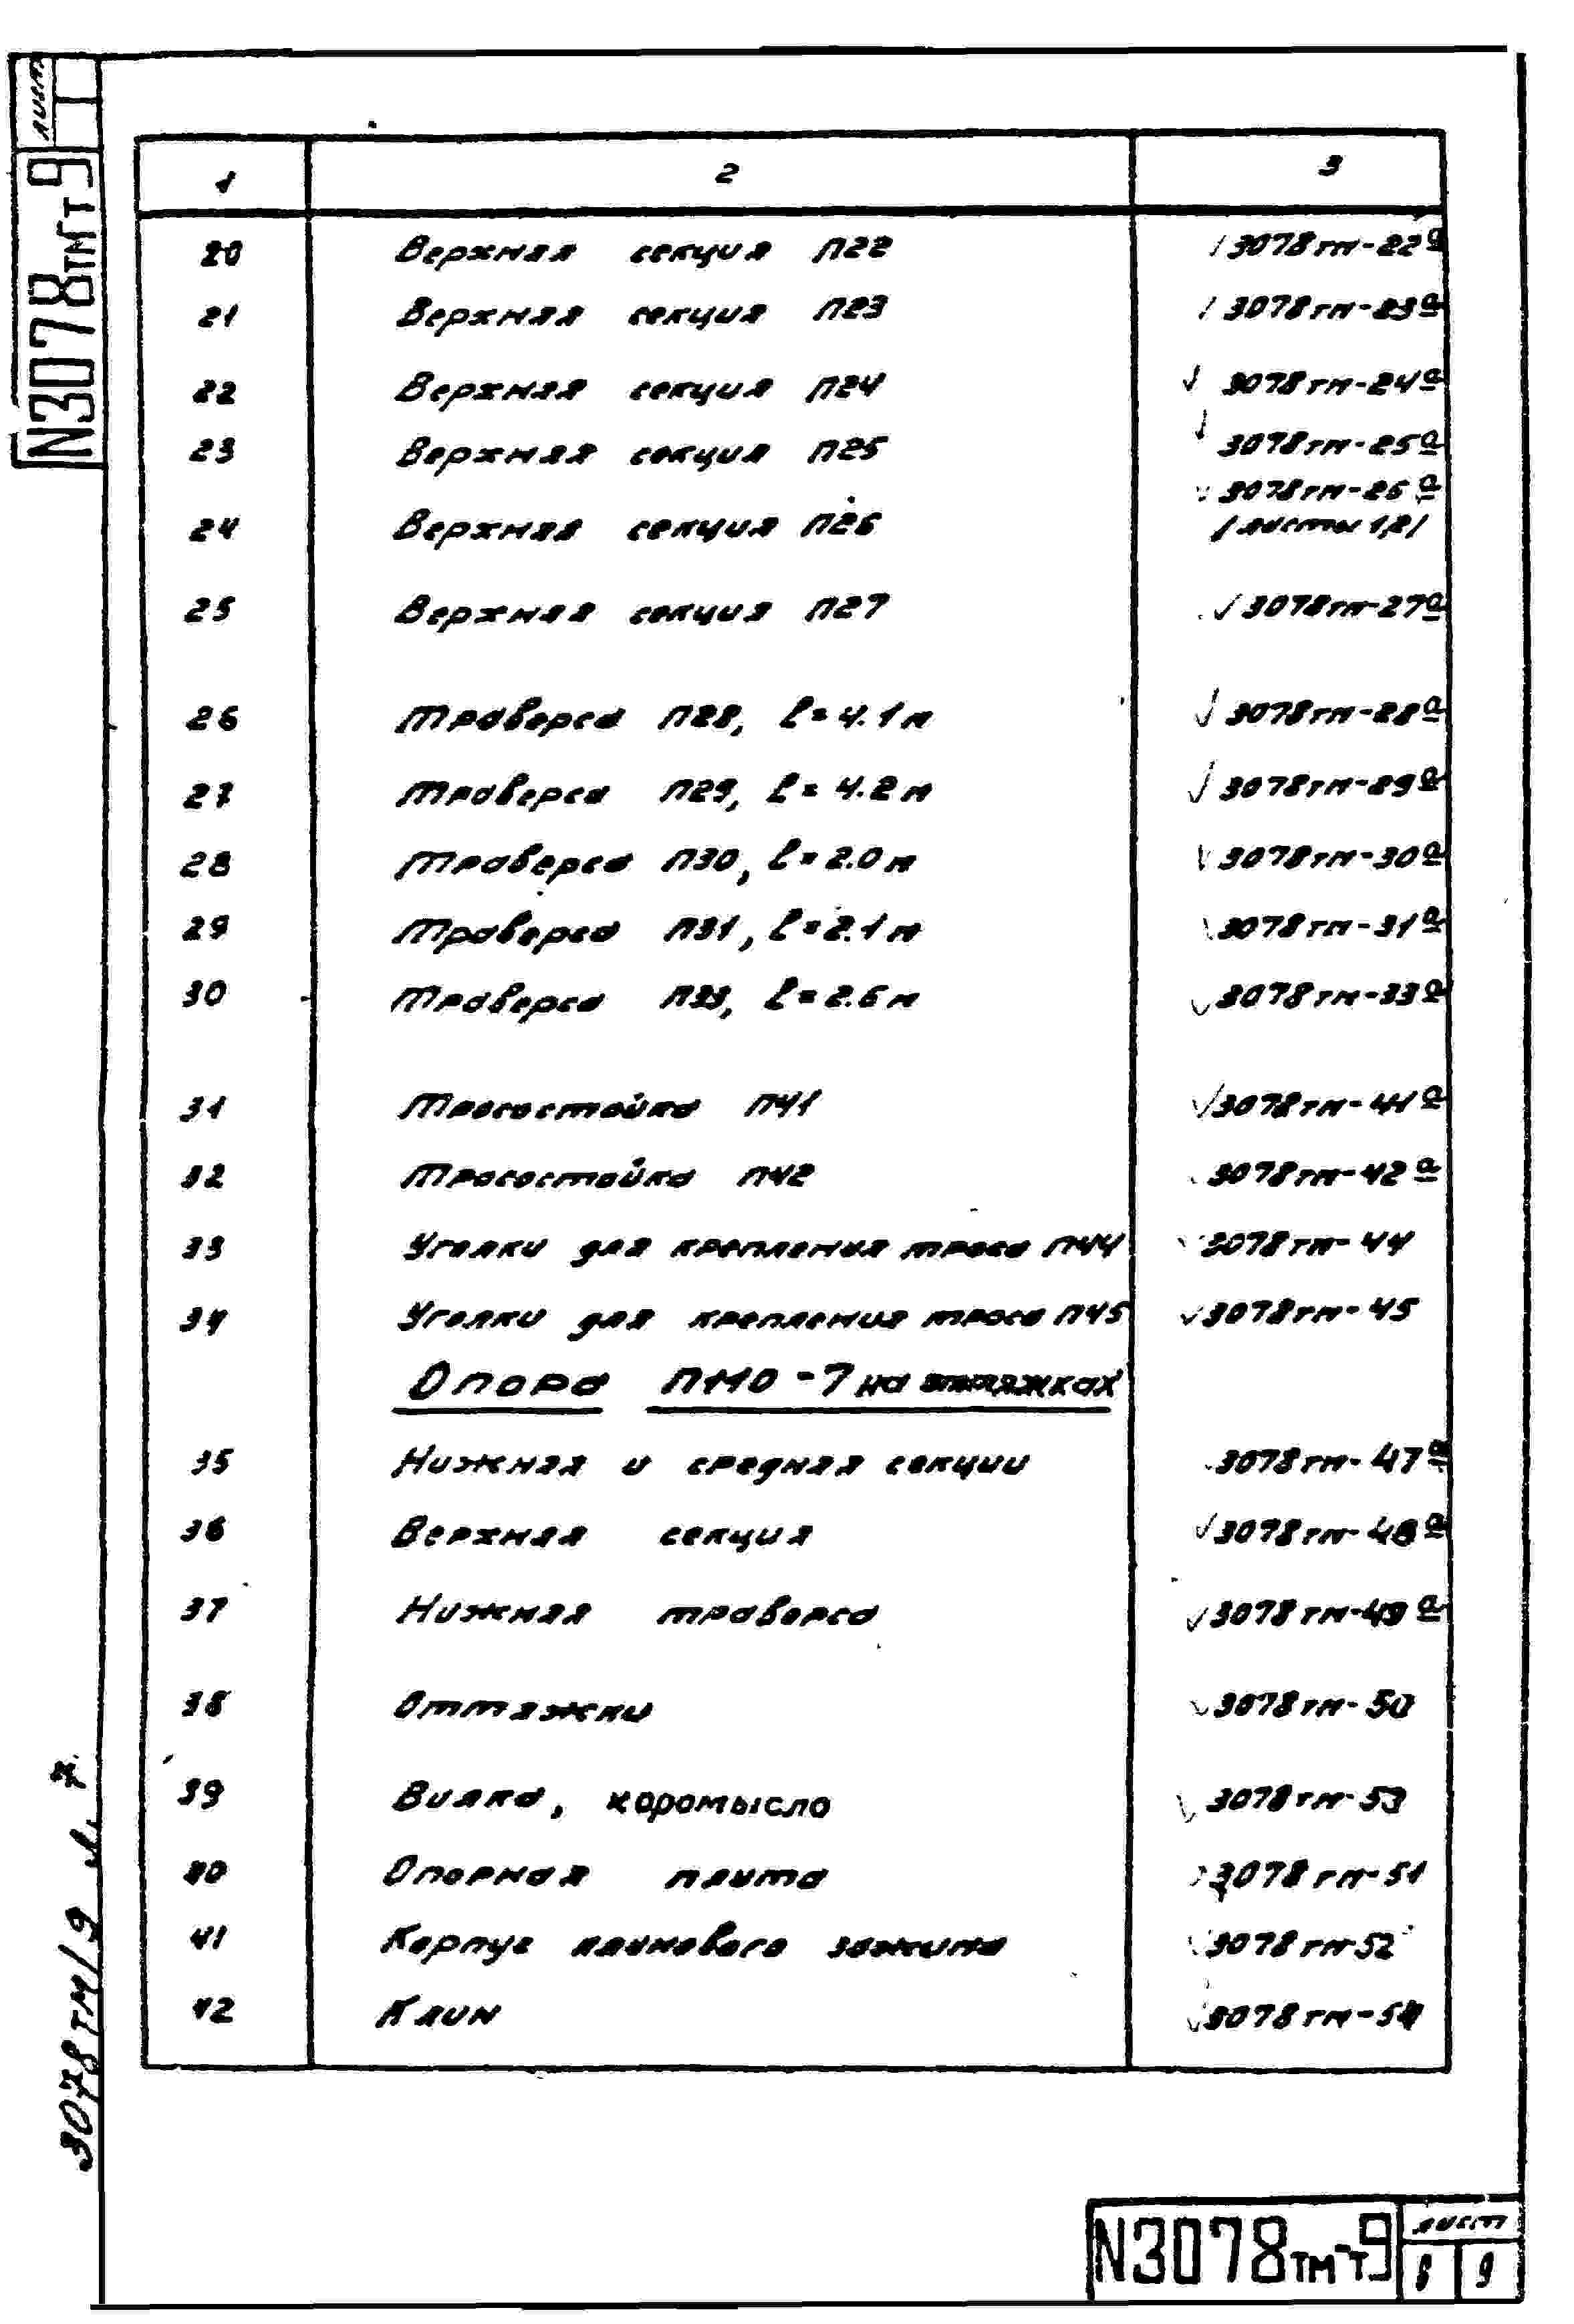 лист
N3078тм-т9
1 2 3
20 Верхняя секция П22 3078тм-22а
21 Верхняя секция П23 3078тм-23а
22 Верхняя секция П24 3078тм-24а
23 Верхняя секция П25 3078тм-25а
3078тм-26а
24 Верхняя секция П26 /листы 1,2/
25 Верхняя секция П27 3078тм-27а
26 Траверса П28, l=4.1м 3078тм-28а
27 Траверса П29, l=4.2м 3078тм-29а
28 Траверса П30, l=2.0м 3078тм-30а
29 Траверса П31, l=2.1м 3078тм-31а
30 Траверса П33, l=2.6м 3078тм-33а
31 Тросостойка П41 3078тм-41а
32 Тросостойка П42 3078тм-42а
33 Уголки для крепления троса П44 3078тм-44
34 Уголки для крепления троса П45 3078тм-45
Опора П110-7 на оттяжках
35 Нижняя и средняя секции 3078тм-47а
36 Верхняя секция 3078тм-48а
37 Нижняя траверса 3078тм-49а
38 Оттяжки 3078тм-50
39 Вилка, коромысло 3078тм-53
40 Опорная плита 3078тм-51
41 Корпус клинового зажима 3078тм-52
42 Клин 3078тм-54
3078тм/9 л. 7
N3078тм-т9
лист
9